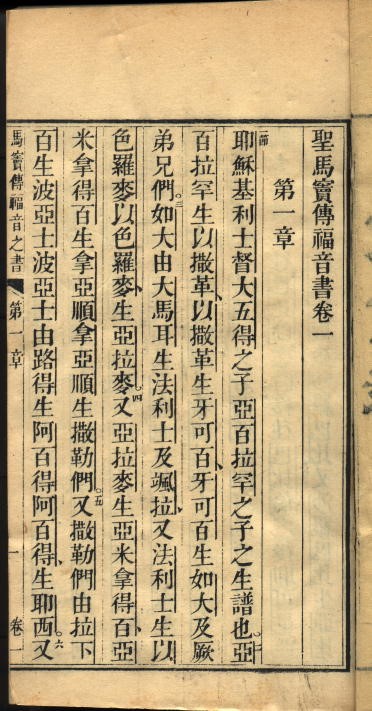 聖馬竇傳福音書卷一
第一章
節一耶穌基利士督大五得之子亞百拉罕之子之生譜也二亞
百拉罕生以撒革以撒革生牙可百牙可百生如大及厥
弟兄們三如大由大馬耳生法利士及颯拉又法利士生以
色羅麥以色羅麥生亞拉麥四又亞拉麥生亞米拿得百亞
米拿得百生拿亞順拿亞順生撒勒們五又撒勒們由拉下
百生波亞士波亞士由路得生阿百得阿百得生耶西六又
馬竇傳福音之書 第一章 一 卷一